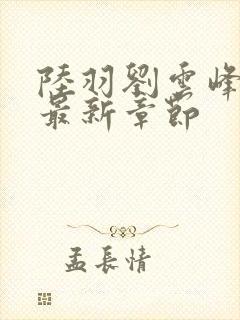 陸羽劉雲峰
最新章節
孟長情